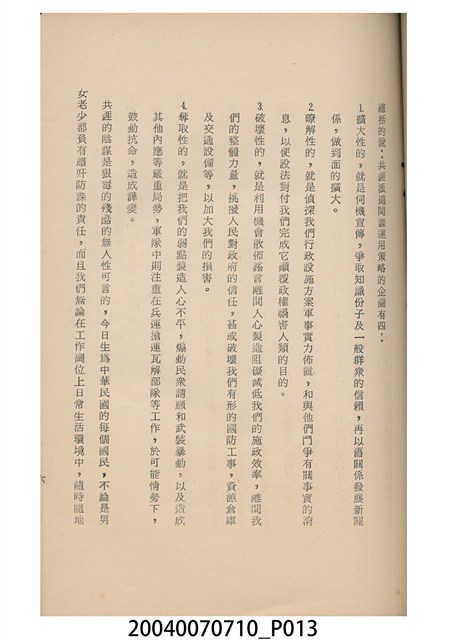 總括的說:共匪派遣間諜運用策略的企圖有四:
1.擴大性的,就是伺機宣傳,爭取知識份子及一般群衆的信賴,再以舊關係發展新關
係,做到面的擴大。
2.瞭解性的,就是偵探我們行政設施方案軍事實力佈置,和與他們鬥爭有關事實的消
息,以便設法對付我們完成它顚覆政權禍害人類的目的。
3.破壞性的,就是利用機會散佈謠言離間人心製造阻礙減低我們的施政效率,離間我
們的整體力量,挑撥人民對政府的信任,甚或破壞我們有形的國防工事,資源倉庫
及交通設備等,以加大我們的損害。
4.奪取性的,就是把我們的弱點製造人心不平,煽動民衆請願和武裝暴動,以及造成
其他內應等嚴重局勢,軍隊中則注重在兵運搶運瓦解部隊等工作,於可能情勢下,
鼓動抗命,造成譁變。
共匪的陰謀是狠毒的殘酷的無人性可言的,今日生爲中華民國的每個國民,不論是男
女老少都負有肅奸防諜的責任,而且我們無論在工作崗位上日常生活環境中,隨時隨地
20040070710_P013